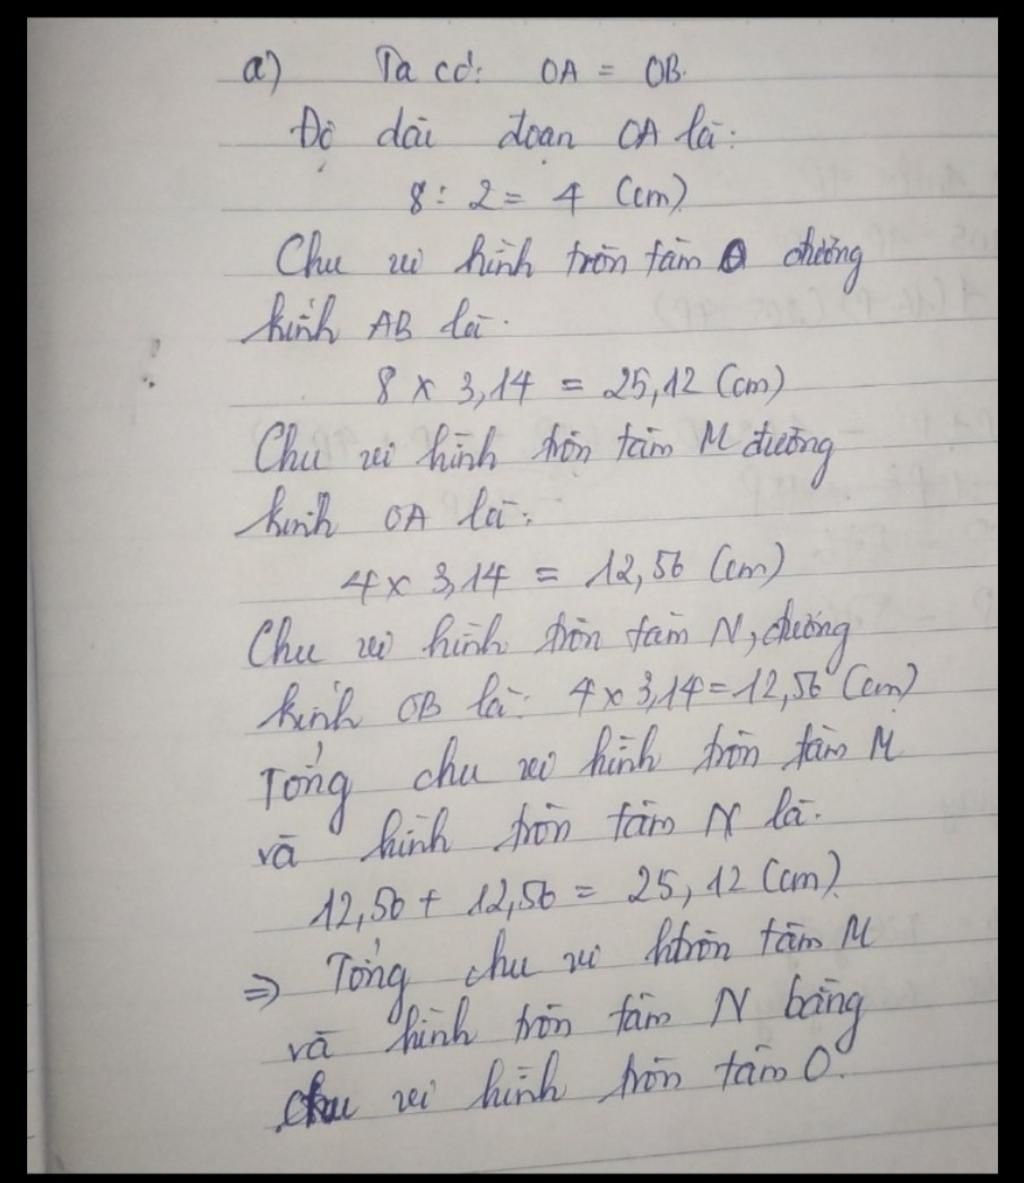 a) Ta có: OA = OB.
Độ dài đoạn OA là:
8 : 2 = 4 (cm)
Chu vi hình tròn tâm O đường
kính AB là.
8 x 3,14 = 25,12 (cm)
Chu vi hình tròn tâm M đường
kính OA là:
4 x 3,14 = 12,56 (cm)
Chu vi hình tròn tâm N, đường
kính OB là: 4 x 3,14 = 12,56 (cm)
Tổng chu vi hình tròn tâm M
và hình tròn tâm N là.
12,56 + 12,56 = 25,12 (cm)
=> Tổng chu vi htròn tâm M
và hình tròn tâm N bằng
chu vi hình tròn tâm O.